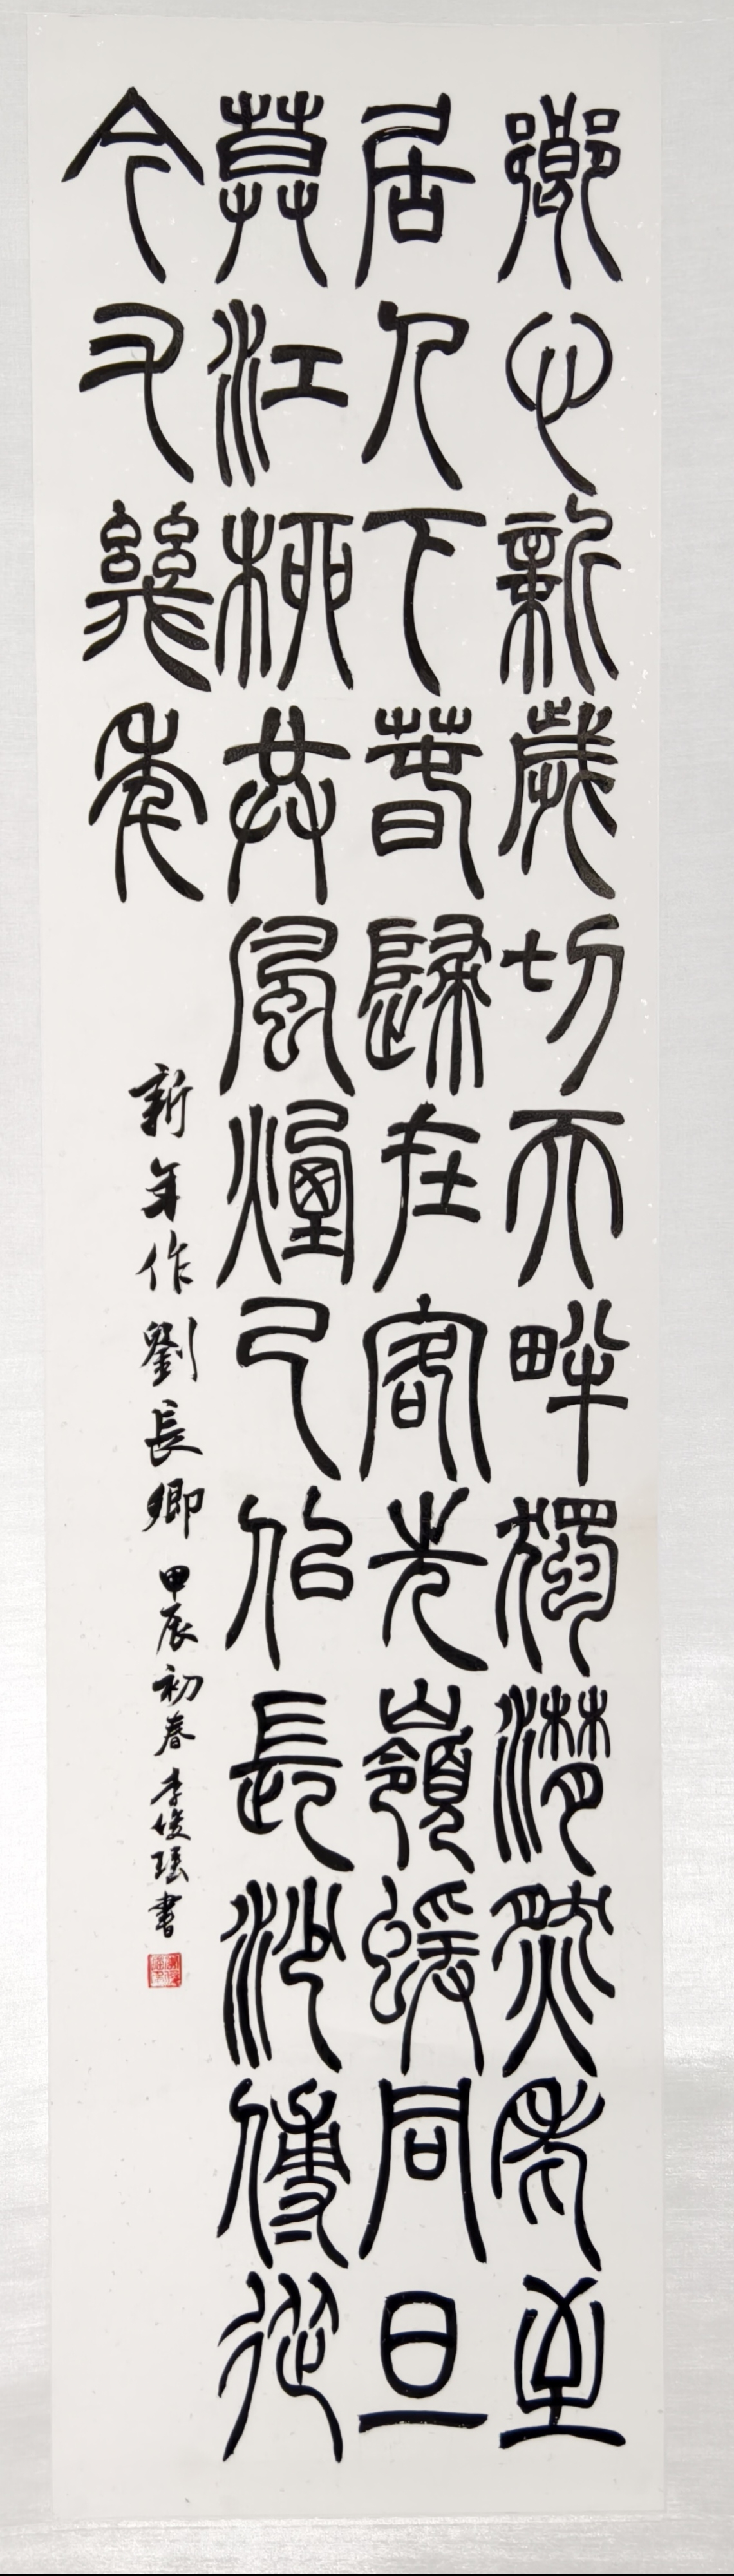 鄉心新歲切天畔獨潸然老至
居人下春歸在客先嶺蝯同旦
莫江柳共風煙已佀長沙傅從
今又幾年
新年作劉長卿甲辰初春李俊瑶書